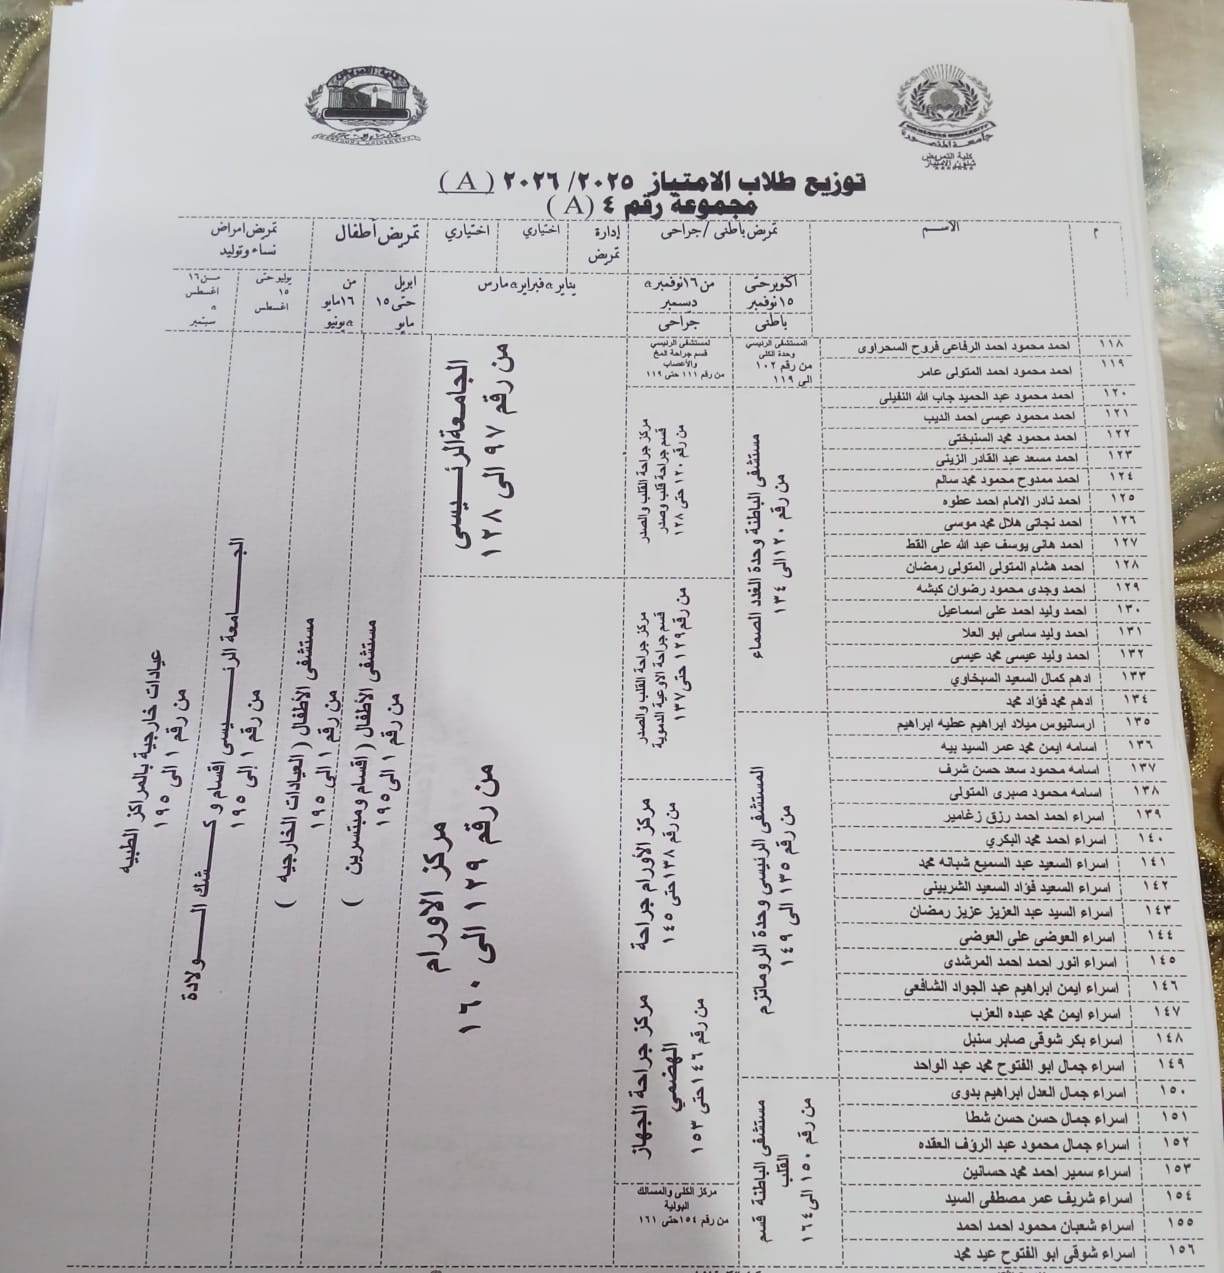 جامعة المنصورة
كلية التمريض
شئون الامتياز
*******
كلية التمريض
توزيع طلاب الامتياز ٢٠٢٥/ ٢٠٢٦ ( A )
مجموعة رقم ٤ ( A )
م
الاسم
تمريض باطنى /جراحى
إدارة تمريض
اختياري
اختياري
تمريض أطفال
تمريض امراض نساء وتوليد
أكتوبر حتى ١٥ نوفمبر
باطنى
من ١٦ نوفمبر a ديسمبر
جراحى
يناير a فبراير a مارس
ابريل حتى ١٥ مايو
من ١٦ مايو a يونيو
يوليو حتى ١٥ اغسطس
من ١٦ اغسطس a سبتمبر
١١٨ احمد محمود احمد الرفاعى فروح السحراوى
١١٩ احمد محمود احمد المتولى عامر
١٢٠ احمد محمود عبد الحميد جاب الله النفيلى
١٢١ احمد محمود عيسى احمد الديب
١٢٢ احمد محمود محمد السنبختى
١٢٣ احمد مسعد عبد القادر الزينى
١٢٤ احمد ممدوح محمود محمد سالم
١٢٥ احمد نادر الامام احمد عطوه
١٢٦ احمد نجاتى هلال محمد موسى
١٢٧ احمد هانى يوسف عبد الله على القط
١٢٨ احمد هشام المتولى المتولى رمضان
١٢٩ احمد وجدى محمود رضوان كبشه
١٣٠ احمد وليد احمد على اسماعيل
١٣١ احمد وليد سامى ابو العلا
١٣٢ احمد وليد عيسى محمد عيسى
١٣٣ ادهم كمال السعيد السبخاوي
١٣٤ ادهم محمد فؤاد محمد
١٣٥ ارسانيوس ميلاد ابراهيم عطيه ابراهيم
١٣٦ اسامه ايمن محمد عمر السيد بيه
١٣٧ اسامه محمود سعد حسن شرف
١٣٨ اسامه محمود صبرى المتولى
١٣٩ اسراء احمد احمد رزق زغامير
١٤٠ اسراء احمد محمد البكري
١٤١ اسراء السعيد عبد السميع شبانه محمد
١٤٢ اسراء السعيد فؤاد السعيد الشربينى
١٤٣ اسراء السيد عبد العزيز عزيز رمضان
١٤٤ اسراء العوضى على العوضى
١٤٥ اسراء انور احمد احمد المرشدى
١٤٦ اسراء ايمن ابراهيم عبد الجواد الشافعى
١٤٧ اسراء ايمن محمد عبده العزب
١٤٨ اسراء بكر شوقى صابر سنبل
١٤٩ اسراء جمال ابو الفتوح محمد عبد الواحد
١٥٠ اسراء جمال العدل ابراهيم بدوى
١٥١ اسراء جمال حسن حسن شطا
١٥٢ اسراء جمال محمود عبد الرؤف العقده
١٥٣ اسراء سمير احمد محمد حسانين
١٥٤ اسراء شريف عمر مصطفى السيد
١٥٥ اسراء شعبان محمود احمد احمد
١٥٦ اسراء شوقى ابو الفتوح عيد محمد
المستشفى الرئيسي
وحدة الكلى
من رقم ١٠٢
الى ١١٩
مستشفى الباطنة وحدة الغدد الصماء
من رقم ١٢٠ الى ١٣٤
المستشفى الرئيسى وحدة الروماتزم
من رقم ١٣٥ الى ١٤٩
مستشفى الباطنة قسم
القلب
من رقم ١٥٠ الى ١٦٤
لمستشفى الرئيسي
قسم جراحة المخ
والأعصاب
من رقم ١١١ حتى ١١٩
مركز جراحة القلب والصدر
قسم جراحة قلب وصدر
من رقم ١٢٠ حتى ١٢٨
مركز جراحة القلب والصدر
قسم جراحة الاوعية الدموية
من رقم ١٢٩ حتى ١٣٧
مركز الأورام جراحة
من رقم ١٣٨ حتى ١٤٥
مركز جراحة الجهاز
الهضمي
من رقم ١٤٦ حتى ١٥٣
مركز الكلى والمسالك
البولية
من رقم ١٥٤ حتى ١٦١
الجامعة الرئيسى
من رقم ٩٧ الى ١٢٨
مركز الاورام
من رقم ١٢٩ الى ١٦٠
مستشفى الأطفال ( اقسام ومبتسرين )
من رقم ١ الى ١٩٥
مستشفى الأطفال ( العيادات الخارجيه )
من رقم ١ الى ١٩٥
الجامعة الرئيسى اقسام وكشك الولادة
من رقم ١ الى ١٩٥
عيادات خارجية بالمراكز الطبيه
من رقم ١ الى ١٩٥